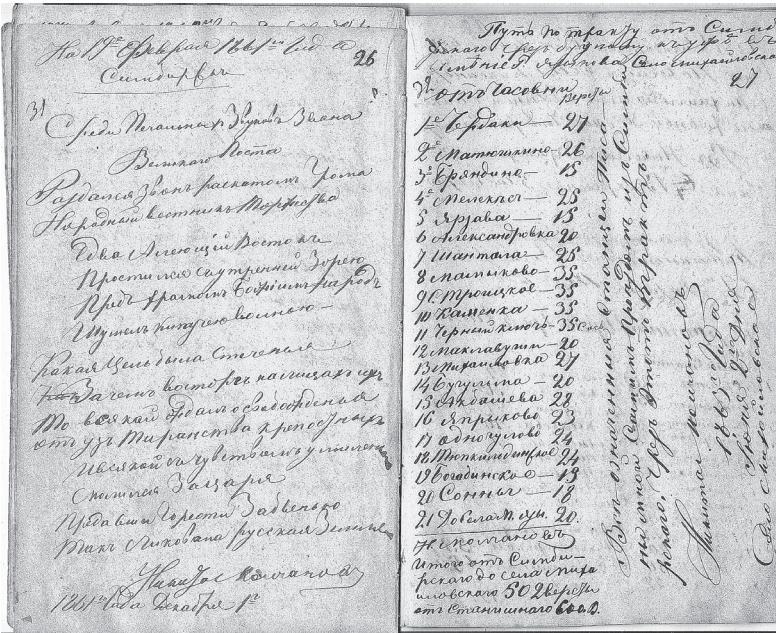 На 19е Февраля 1861го Года
26
Симбирскъ
31
Среди Печальныхъ Звуковъ Звона
Великаго Поста
Раздался Звонъ раскатомъ Грома
Народный вестникъ Торжества
Едва Алеющій Востокъ
Простился съ утренней Зорею
Предъ Храмомъ Божіимъ народъ
Шумелъ кипучею волною
Какая Цель была Стеченья
Зачемъ восторгъ на лицахъ ихъ
То всякой ждалъ освобожденья
отъ узъ Тиранства крепостныхъ
И всякой съ чувствомъ умиленья
Молился За царя
Предавши Горести Забвенью
Такъ Ликовала русская Земля
Никита Молчановъ
1861го Года Декабря 1го
Путь по тракту отъ Симбирскаго
имѣніе Г.
Село Михайловское
27
32
отъ Часовни
Версты
1е Чердаки — 27
2е Матюшкино — 26
3е Бряндино — 15
4е Мелекесъ — 25
5 Ярзава — 15
6 Александровка 20
7 Шантала — 25
8 — 35
9 Троицкое — 35
10 Каменка — 35
11 Черный ключъ — 35
12 — 20
13 Михайловка 27
14 Бугульма — 20
15 Акбашева 28
16 Япрыково 23
17 24
18 24
19 Богадинское — 19
20 Сонны — 18
21 До Села М. 20.
Н Молчановъ
Итого отъ Симби-
рскаго до села Миха
иловскаго 502 версты
отъ Станишнаго
Вст означенныя Станціи Писа-
ны мной Самимъ Проездомъ изъ Симби
рскаго, Чрезъ Этотъ Трактъ
Никита Молчановъ
1863 Года
Іюня 2го Дня
Село Михайловское